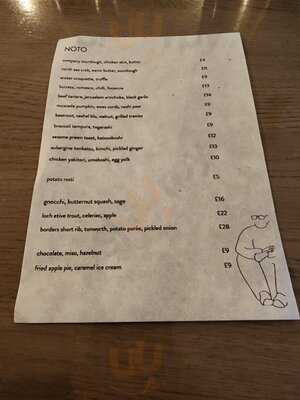 NOTO
company sourdough, chicken skin, butter £4
north sea crab, warm butter, sourdough
oyster croquette, truffle £9
burrata, romesco, chilli, focaccia £13
beef tartare, jerusalem artichoke, black garlic £14
muscade pumpkin, ewes curds, nashi pear £9
beetroot, rachel blu, walnut, grilled treviso £9
broccoli tempura, togarashi £9
sesame prawn toast, katsuobushi £12
aubergine tonkatsu, kimchi, pickled ginger £13
chicken yakitori, umeboshi, egg yolk £10
potato rosti £5
gnocchi, butternut squash, sage £16
loch etive trout, celeriac, apple £22
borders short rib, tamworth, potato purée, pickled onion £28
chocolate, miso, hazelnut £9
fried apple pie, caramel ice cream £9